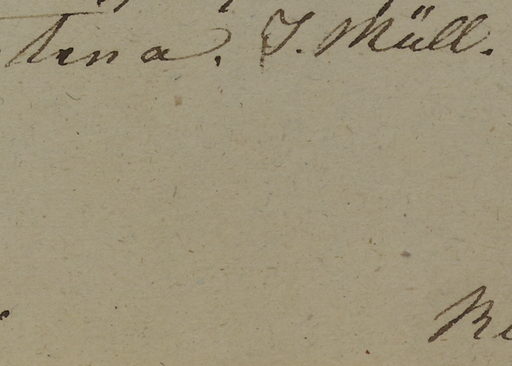 tena. J. Müll.